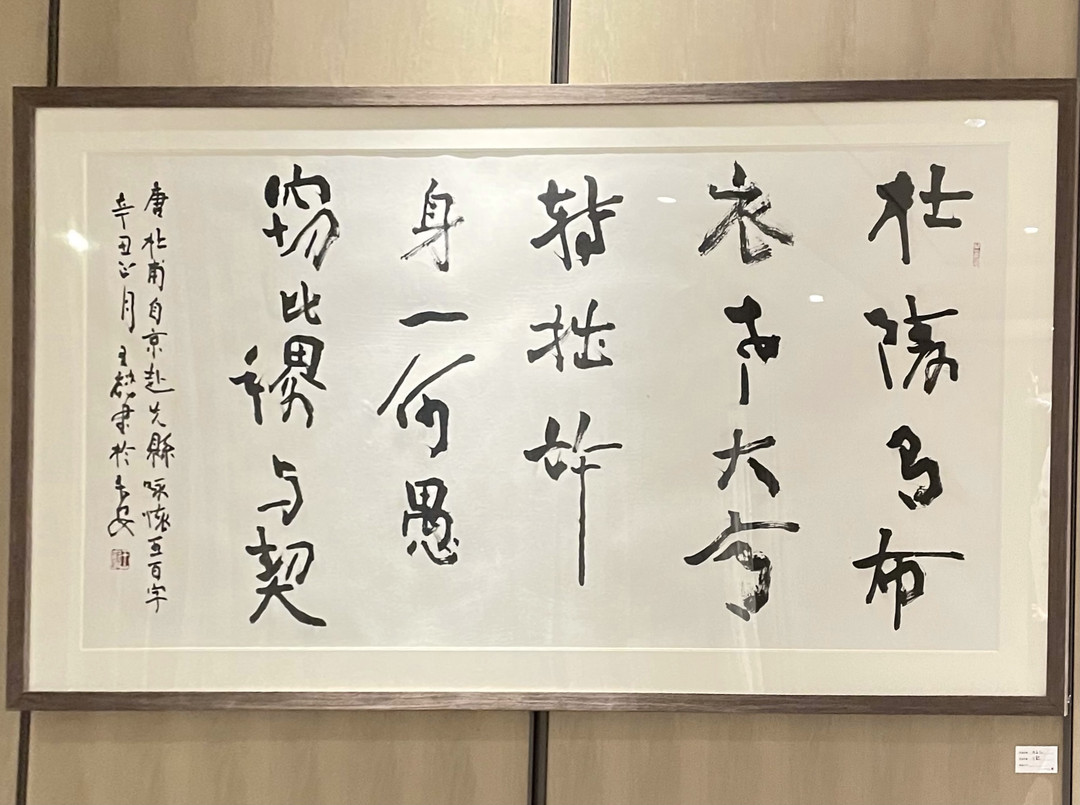 杜陵有布
衣老大意
转拙许
身一何愚
窃比稷与契
唐杜甫自京赴先縣咏懷五百字
辛丑正月 王書於長安